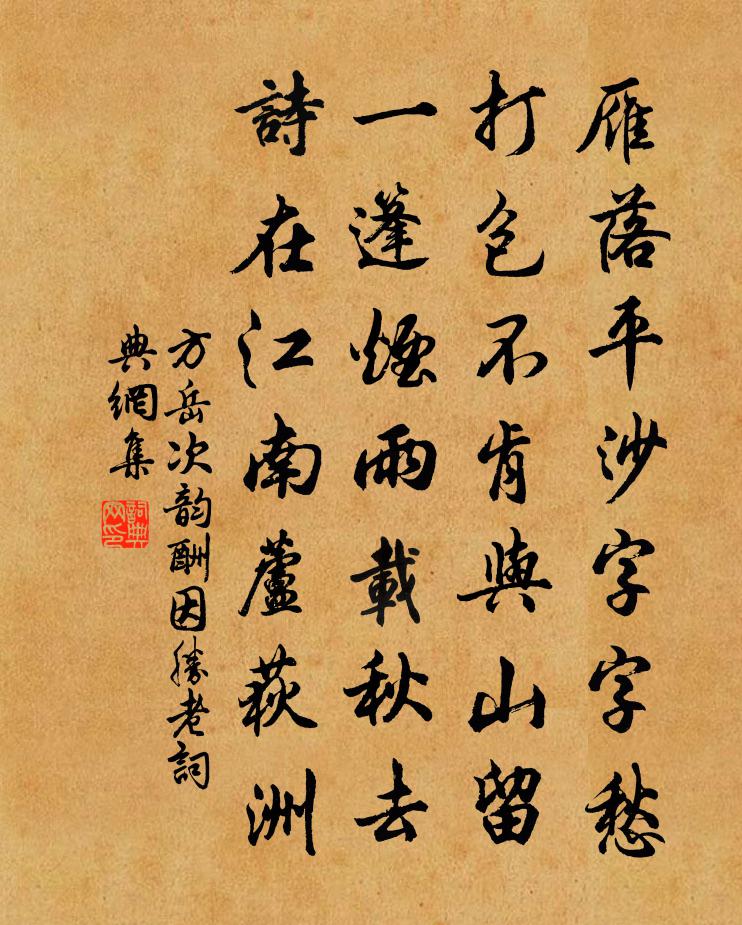 雁落平沙字字愁
打包不肯與山留
一篷煙雨載秋去
詩在江南蘆荻洲
方岳次韵酬因勝老詞
典網集
詞典
网印